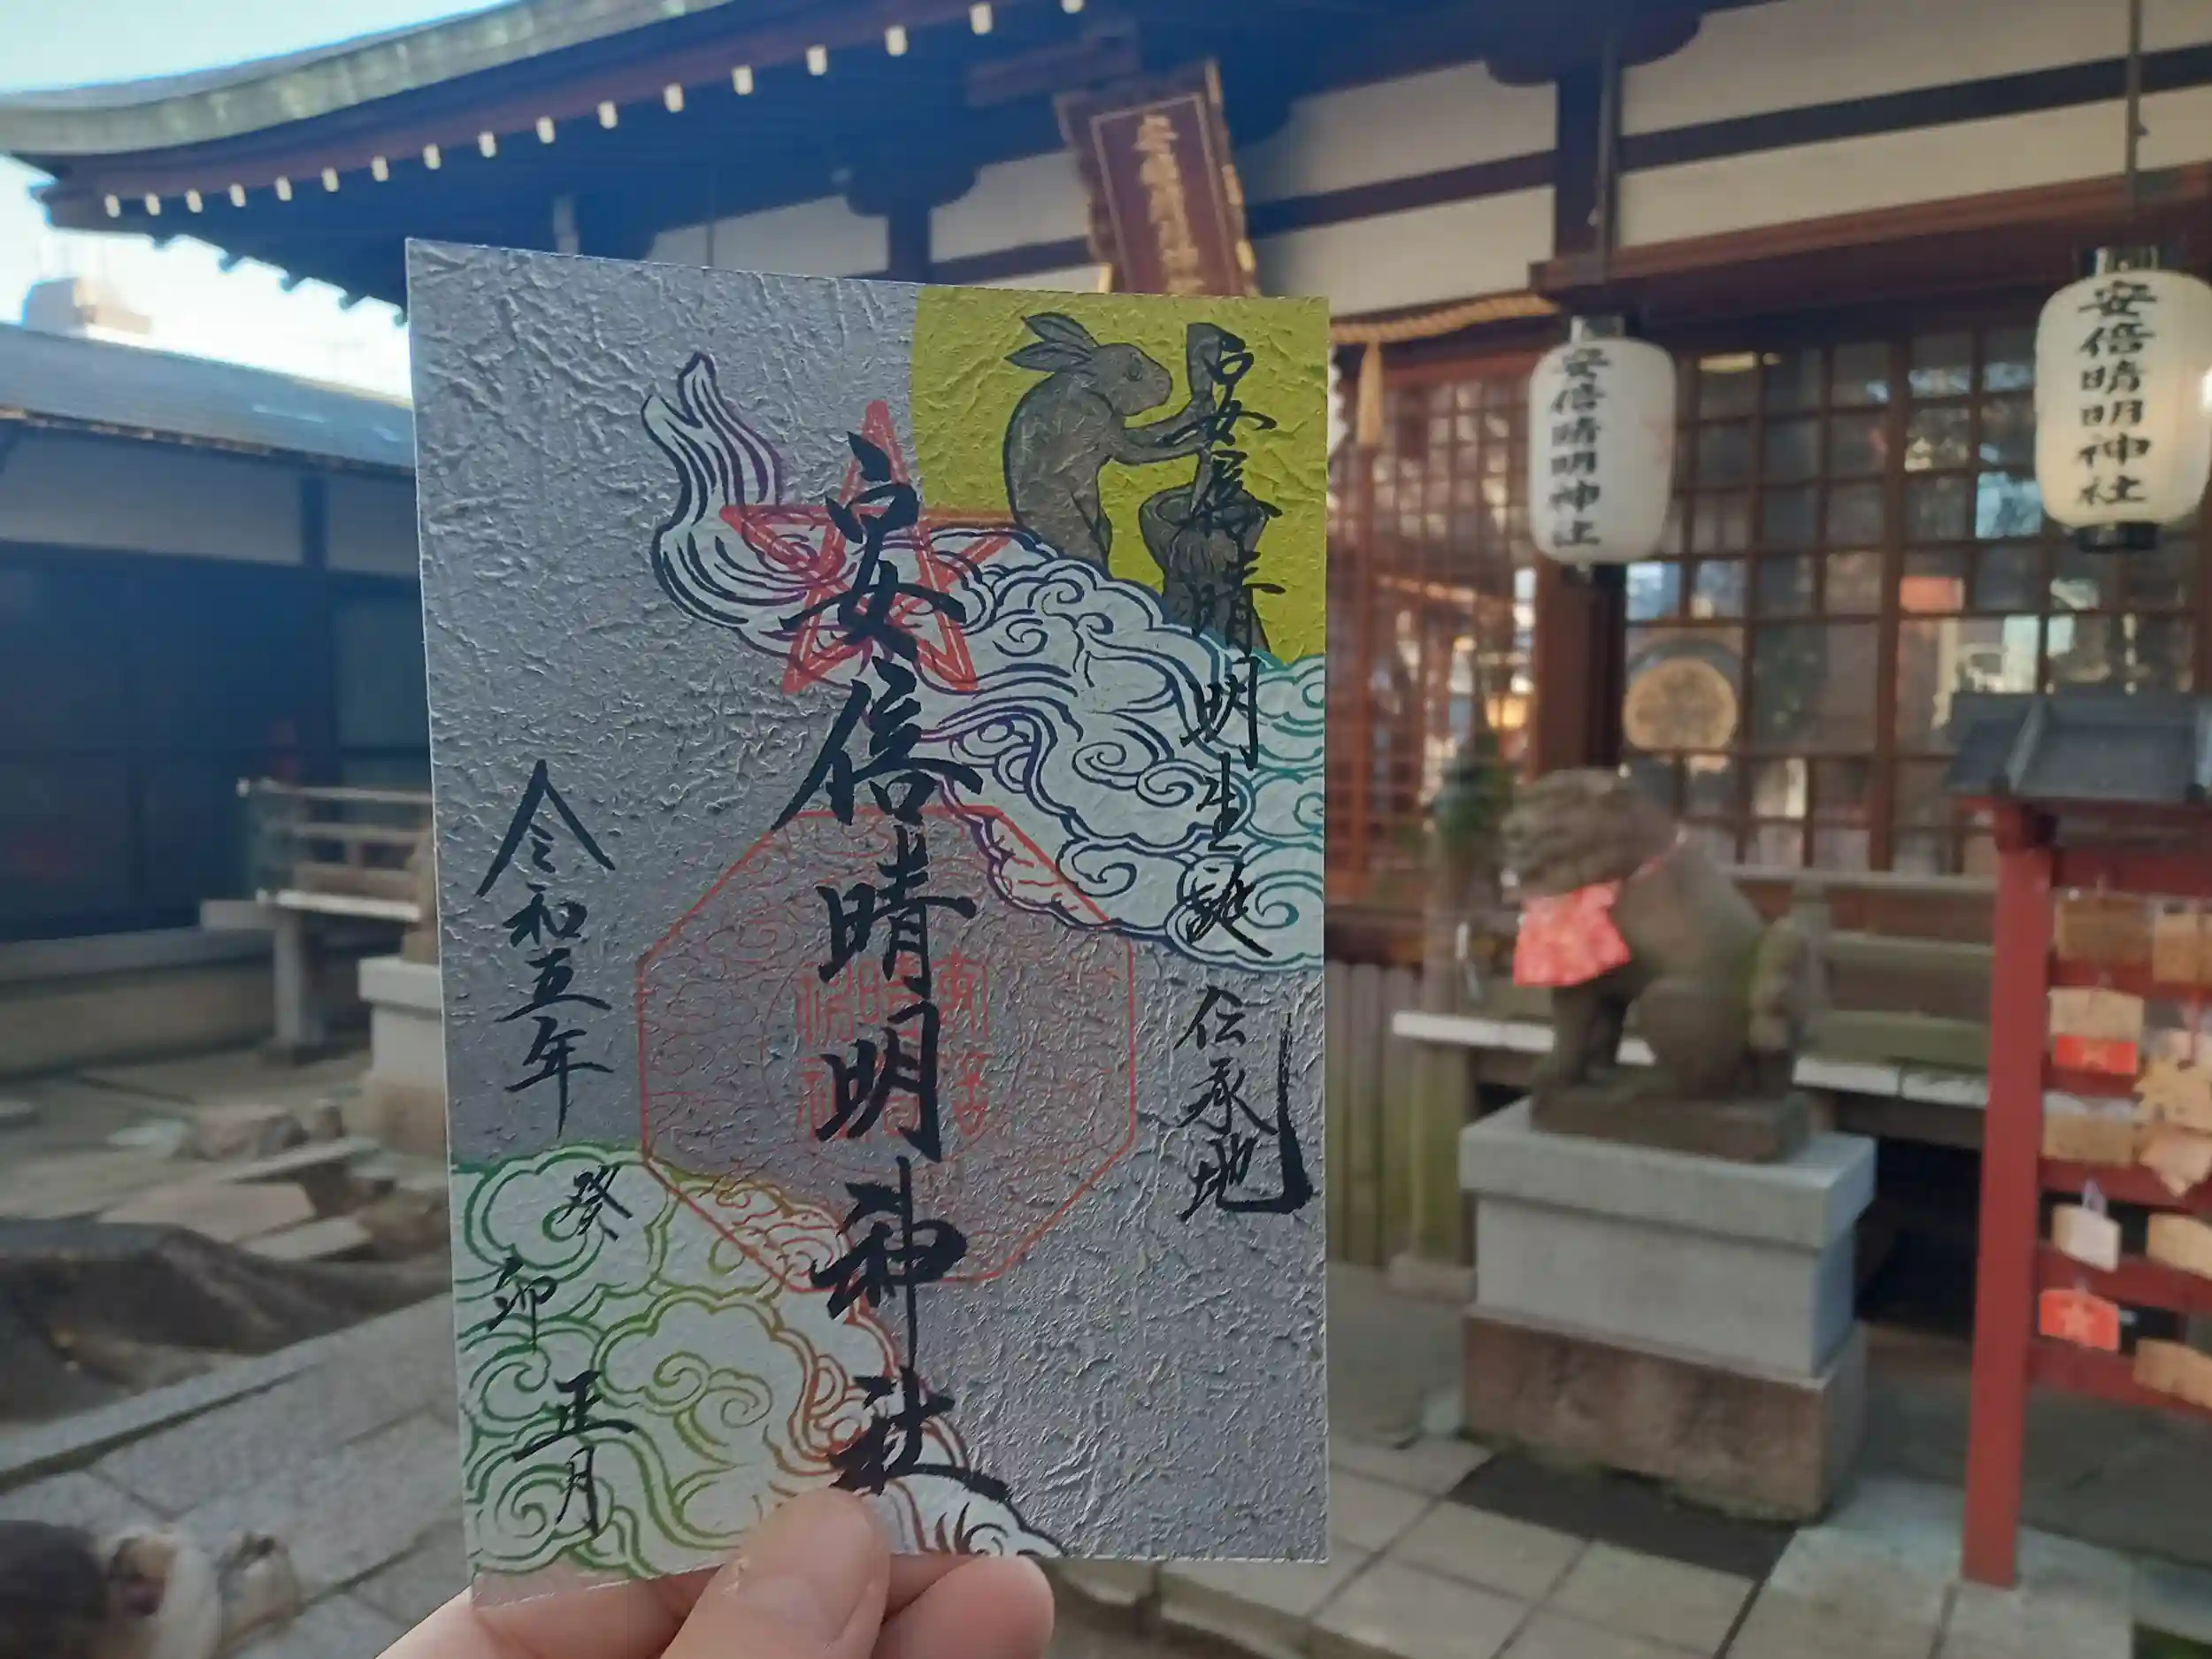 安倍晴明生誕伝承地
安倍晴明神社
令和五年
癸卯
正月
安倍晴明神社
安倍晴明神社
安倍晴明神社